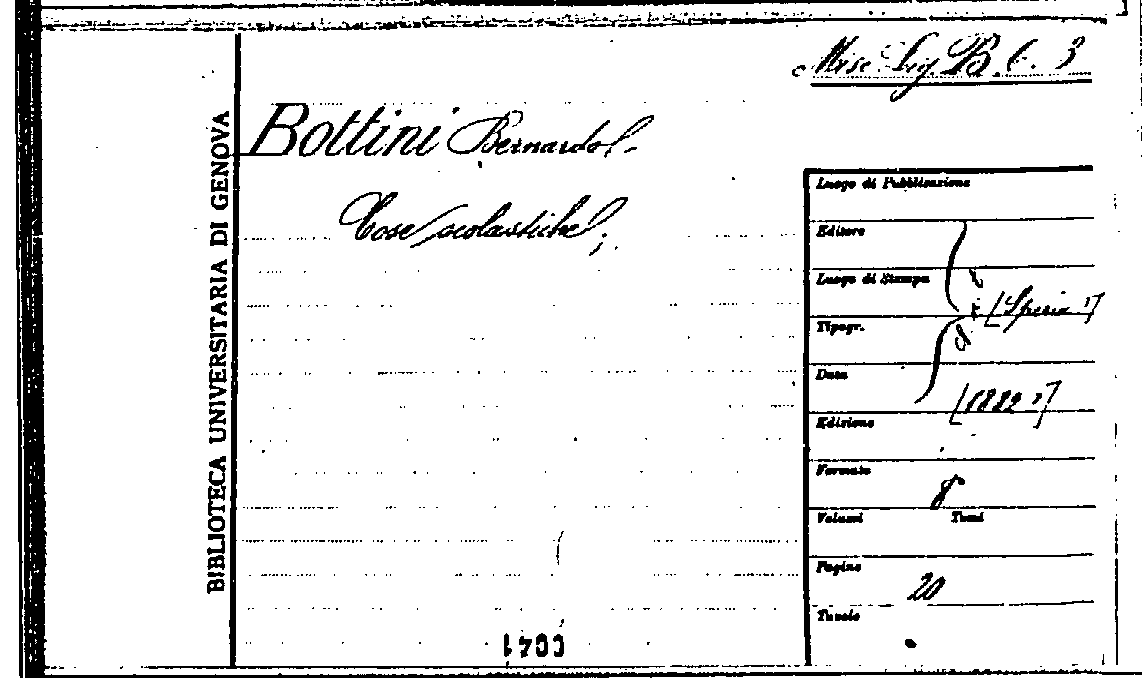 Misc. Lig. B. 6. 3
BIBLIOTECA UNIVERSITARIA DI GENOVA
Bottini Bernardo.
Cose scolastiche;
Luogo di Pubblicazione
Editore
Luogo di Stampa
[Spezia ?]
Tipogr.
Data
[1882 ?]
Edizione
Formato
8°
Volumi Tomi
Pagine
20
Tavole
0041